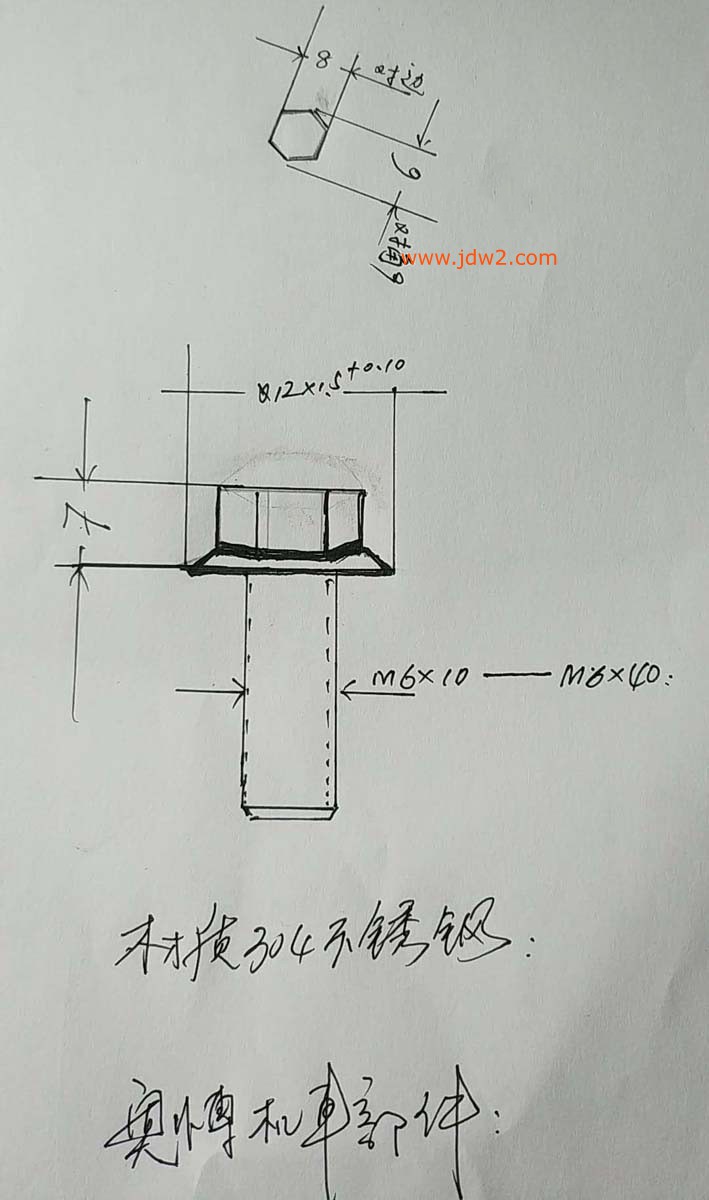 8 对边
9
对角9
www.jdw2.com
Ø12×1.5+0.10
7
M6×10 — M6×40:
材质304不锈钢:
奥博机車部件: